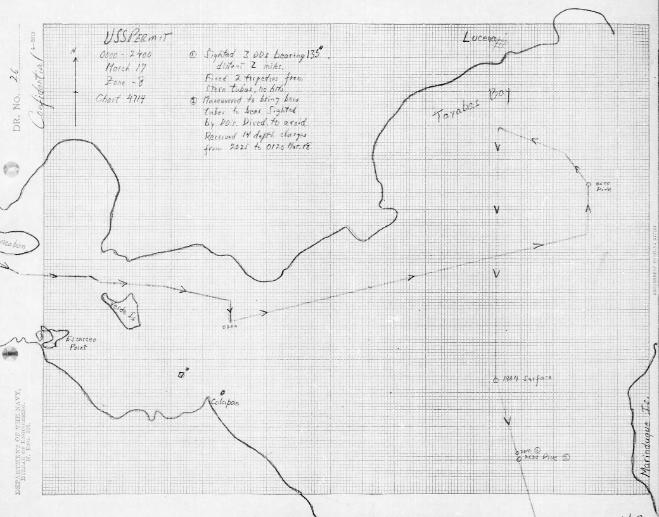 DR. NO. 26
Confidential
USS Permit
0000 - 2400
March 17
Zone -8
Chart 4714
N
① Sighted 3 DDs bearing 135°.
distant 2 miles.
Fired 2 torpedoes from
Stern tubes, no hits.
② Maneuvered to bring bow
tubes to bear. Sighted
by DD's. Dived to avoid.
Received 14 depth charges
from 2025 to 0120 Mar. 18
Lucena
Tayabas Bay
Dive
Verde Is.
0200
Escarceo
Point
Calapan
1904 Surface
①
Dive ②
Marinduque Is.
DEPARTMENT OF THE NAVY,